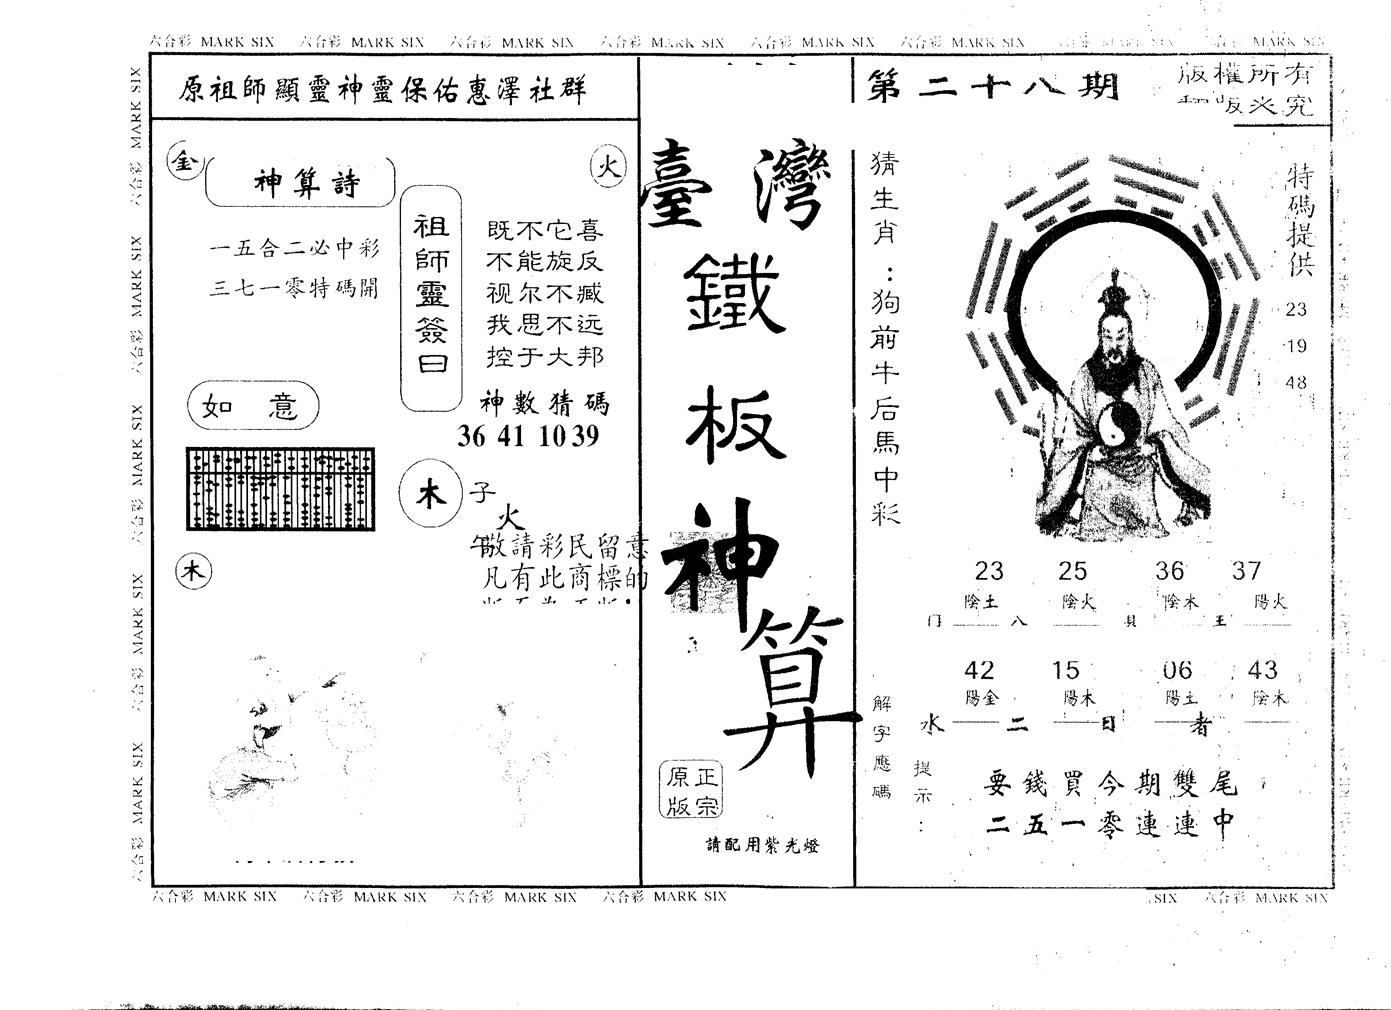 六合彩 MARK SIX 六合彩 MARK SIX 六合彩 MARK SIX 六合彩 MARK SIX 六合彩 MARK SIX 六合彩 MARK SIX MARK SIX
原祖師顯靈神靈保佑惠澤社群
金
神算詩
火
一五合二必中彩
三七一零特碼開
祖師靈簽曰
既不它喜
不能旋反
视尔不臧
我思不远
控于大邦
神數猜碼
36 41 10 39
如 意
木 子
火
午
敬請彩民留意
凡有此商標的
木
臺灣
鐵
板
神
算
正宗
原版
請配用紫光燈
第二十八期
版權所有
究
猜生肖：狗前牛后馬中彩
特碼提供
23
19
48
23 25 36 37
陰土 陰火 陰木 陽火
八 貝 王
42 15 06 43
陽金 陽木 陽土 陰木
水 二 日 者
解字應碼
提示：
要錢買今期雙尾
二五一零連連中
六合彩 MARK SIX 六合彩 MARK SIX 六合彩 MARK SIX 六合彩 MARK SIX SIX 六合彩 MARK SIX
六合彩 MARK SIX 六合彩 MARK SIX 六合彩 MARK SIX 六合彩 MARK SIX 六合彩 MARK SIX